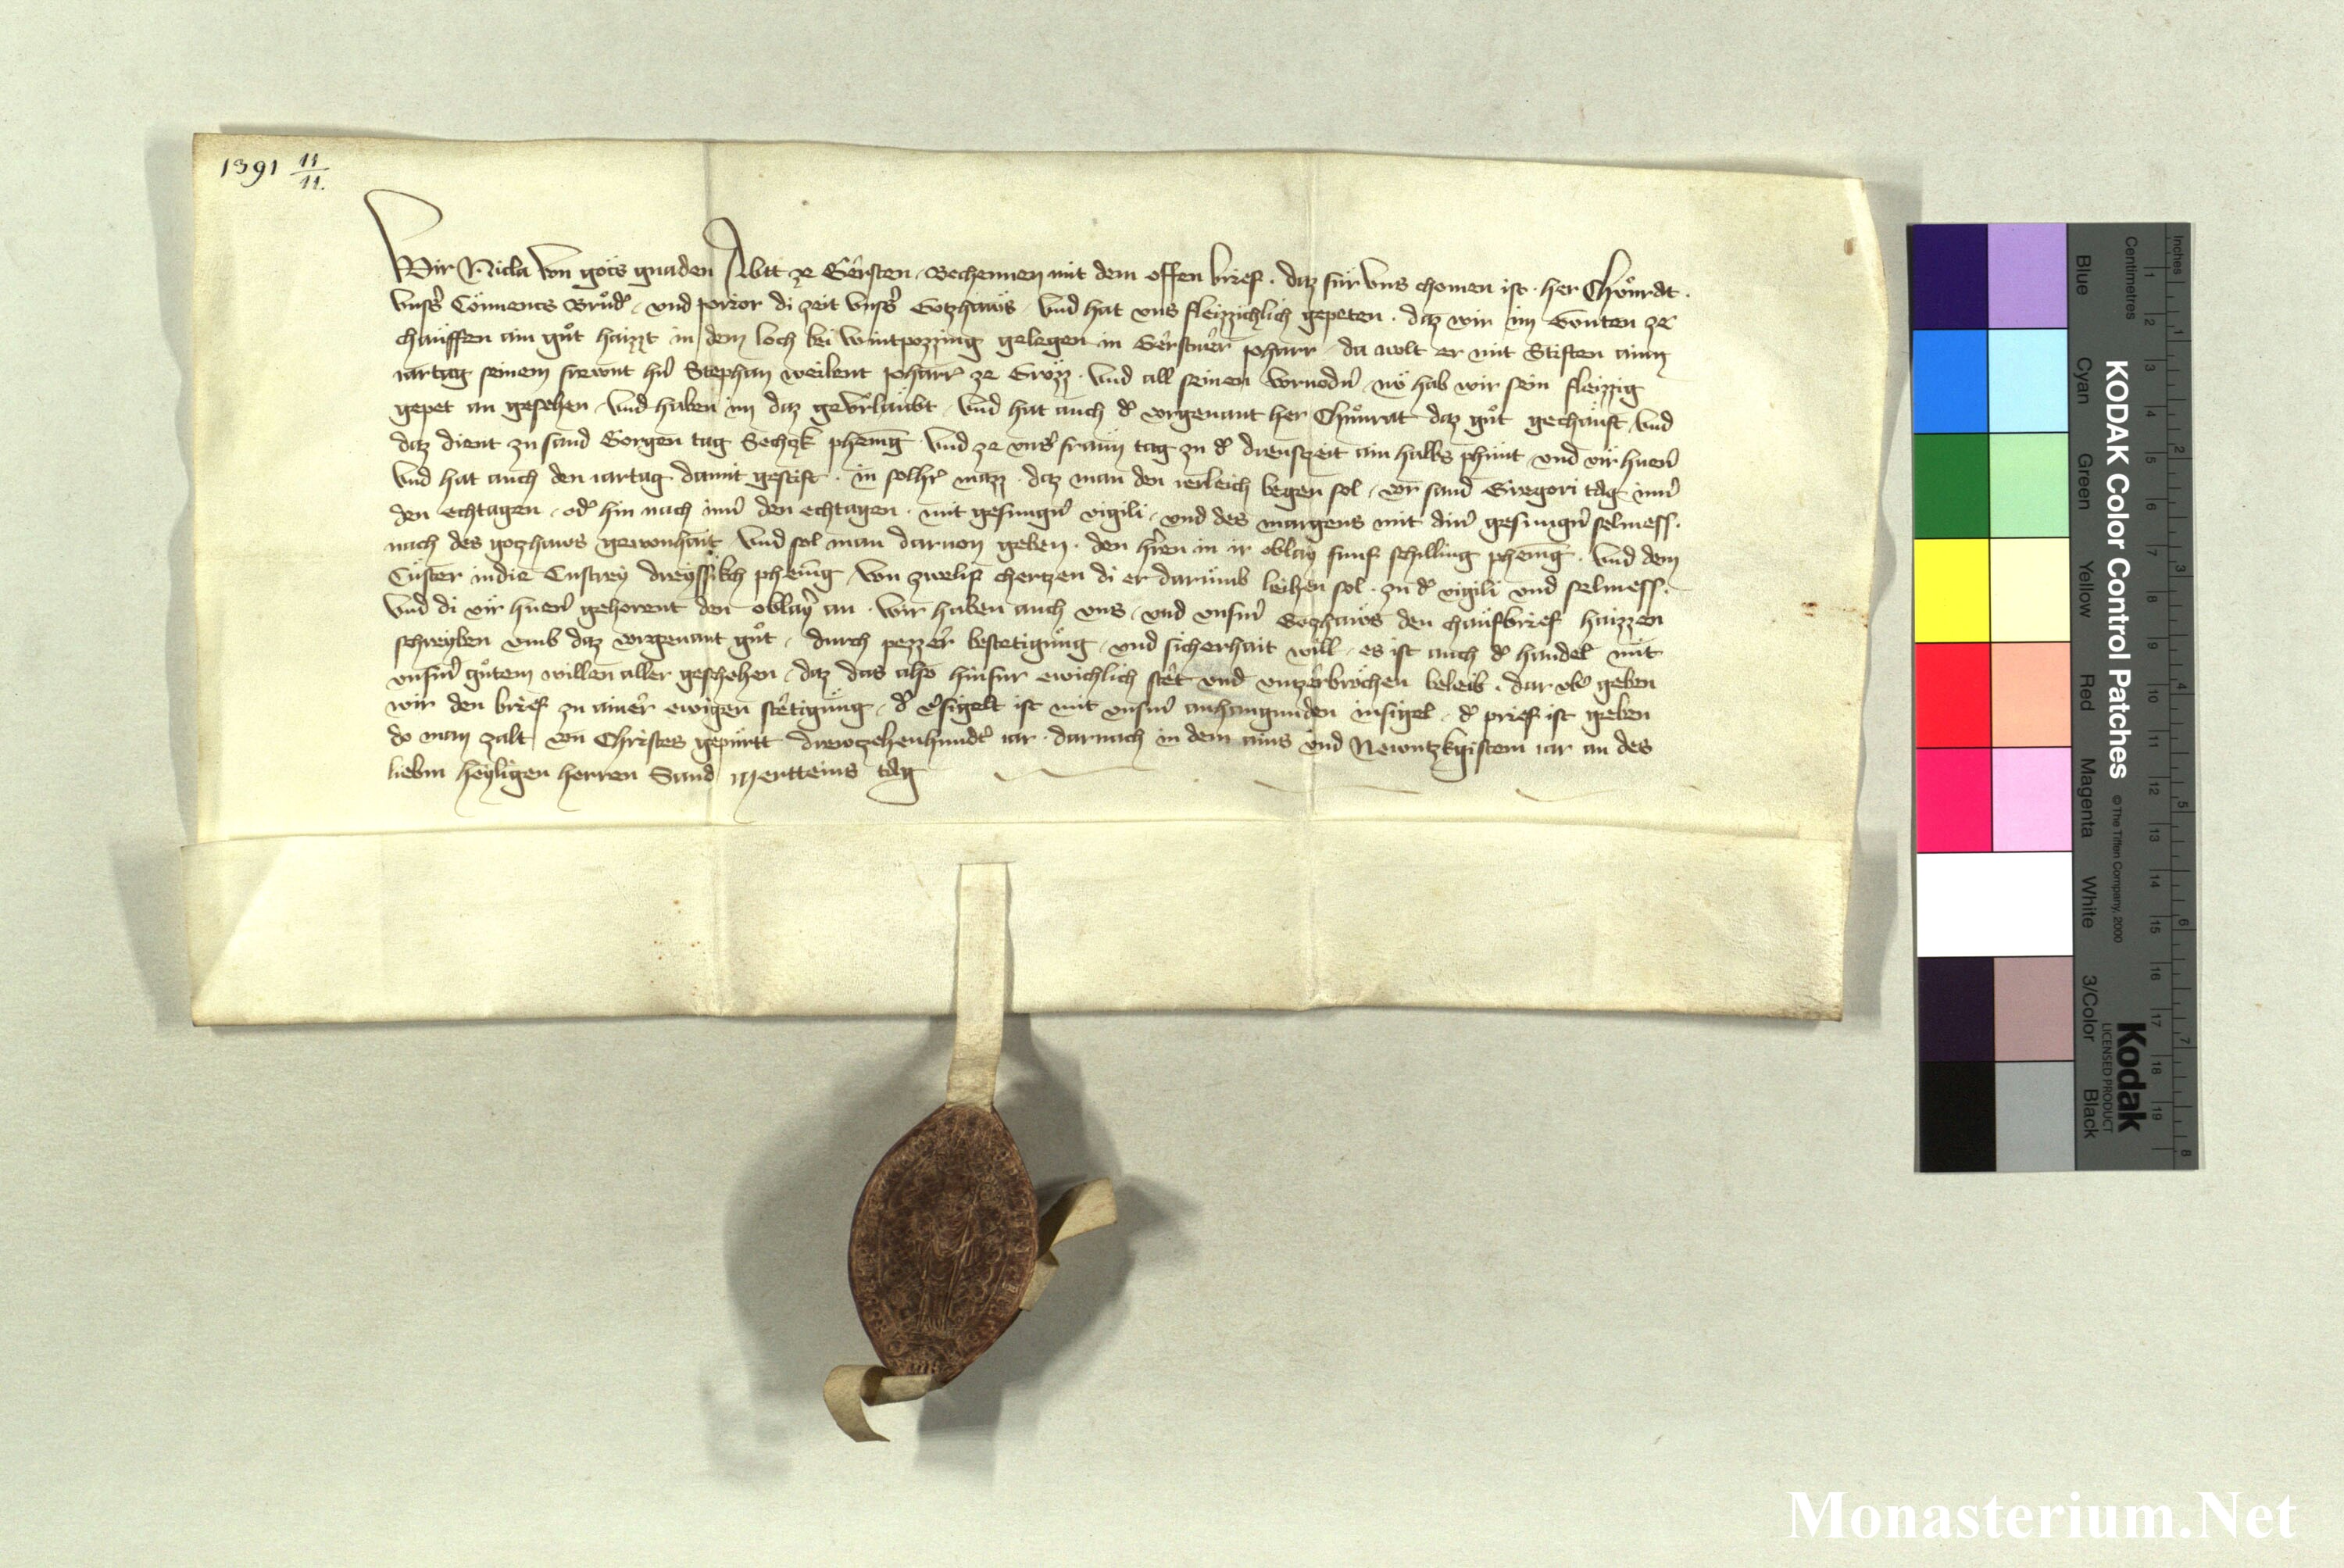 1391 11/11.
Wir Nicla von gots gnaden Abtt ze Gersten Vechennen mit dem offen brief · daz für vns chomen ist · her Chůnrat ·
vnsers Conuents Brůder · vnd prior di zeit vnsers Gotzhaws · vnd hat vns fleizzichlich gepeten · daz wir im Gonten ze
chauffen ain gůt haizzt in dem loch bei wintpozzing gelegen in Gerstner pharr · da wolt er mit Stiften ainn
iartag seinem frewnt hern Stephan weilent pharrer ze Grozz · vnd all seinen voruodern · nv hab wir sein fleizzig
gepet an gesehen vnd haben im daz gevrlaubt · vnd hat auch der vorgenant her Chunrat daz gůt gechauft vnd
daz dient zu sand Gorgen tag Sechzk phenig vnd ze vnser frawn tag zu der dienstzeit ain halbs phunt vnd vir huener
vnd hat auch den iartag damit gestift · in solher mazz · daz man den ierleich begen sol · vor sand Gregori tag inner
den echtagen · oder hin nach inner den echtagen · mit gesungner vigili · vnd des margens mit ainer gesungner selmess ·
nach des gotzhaws gewonhait vnd sol man daruon geben · den herren in ir oblay funf schilling phenig · vnd dem
Custer in die Custrey dreyssikch phenig von zwelif chertzen di er darumb leihen sol · zu der vigili vnd selmess ·
vnd di vir huener gehorent den oblayer an · wir haben auch vns · vnd vnserm Gotzhaws den chaufbrief haizzen
schreyben vmb daz vorgenant gůt · durch pezzer bestetigung · vnd sicherhait will · es ist auch der handel mit
vnserm gůtem willen aller geschehen · daz das also hinfur ewichlich stet vnd vnzerbrochen beleib · dar vber geben
wir den brief zu ainer ewigen stetigung · der versigelt ist mit vnserm anhangunden insigel · der prief ist geben
do man zalt von Christes gepurtt drewzehenhundert iar · darnach in dem ains vnd Newntzkgistem iar an des
liebm heyligen herren Sand Mertteins tag
KODAK Color Control Patches
© The Tiffen Company, 2000
Kodak
LICENSED PRODUCT
Blue Cyan Green Yellow Red Magenta White 3/Color Black
Centimetres
1 2 3 4 5 6 7 8 9 10 11 12 13 14 15 16 17 18 19
Inches
1 2 3 4 5 6 7 8
Monasterium.Net